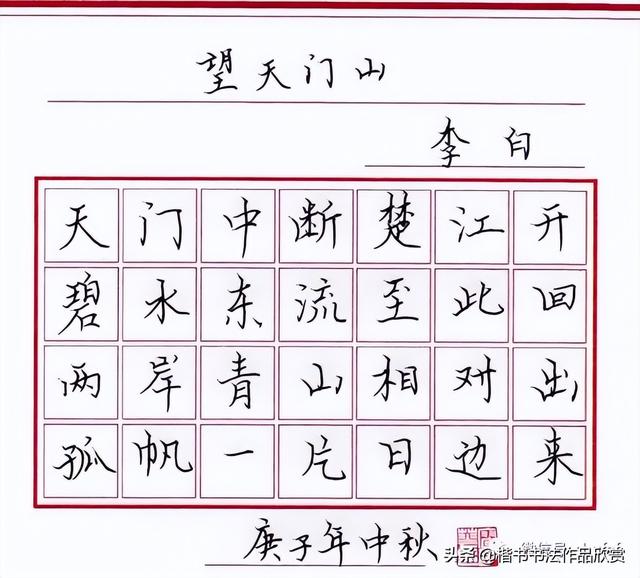 望天门山
李白
天门中断楚江开
碧水东流至此回
两岸青山相对出
孤帆一片日边来
庚子年中秋
头条@楷书书法作品欣赏